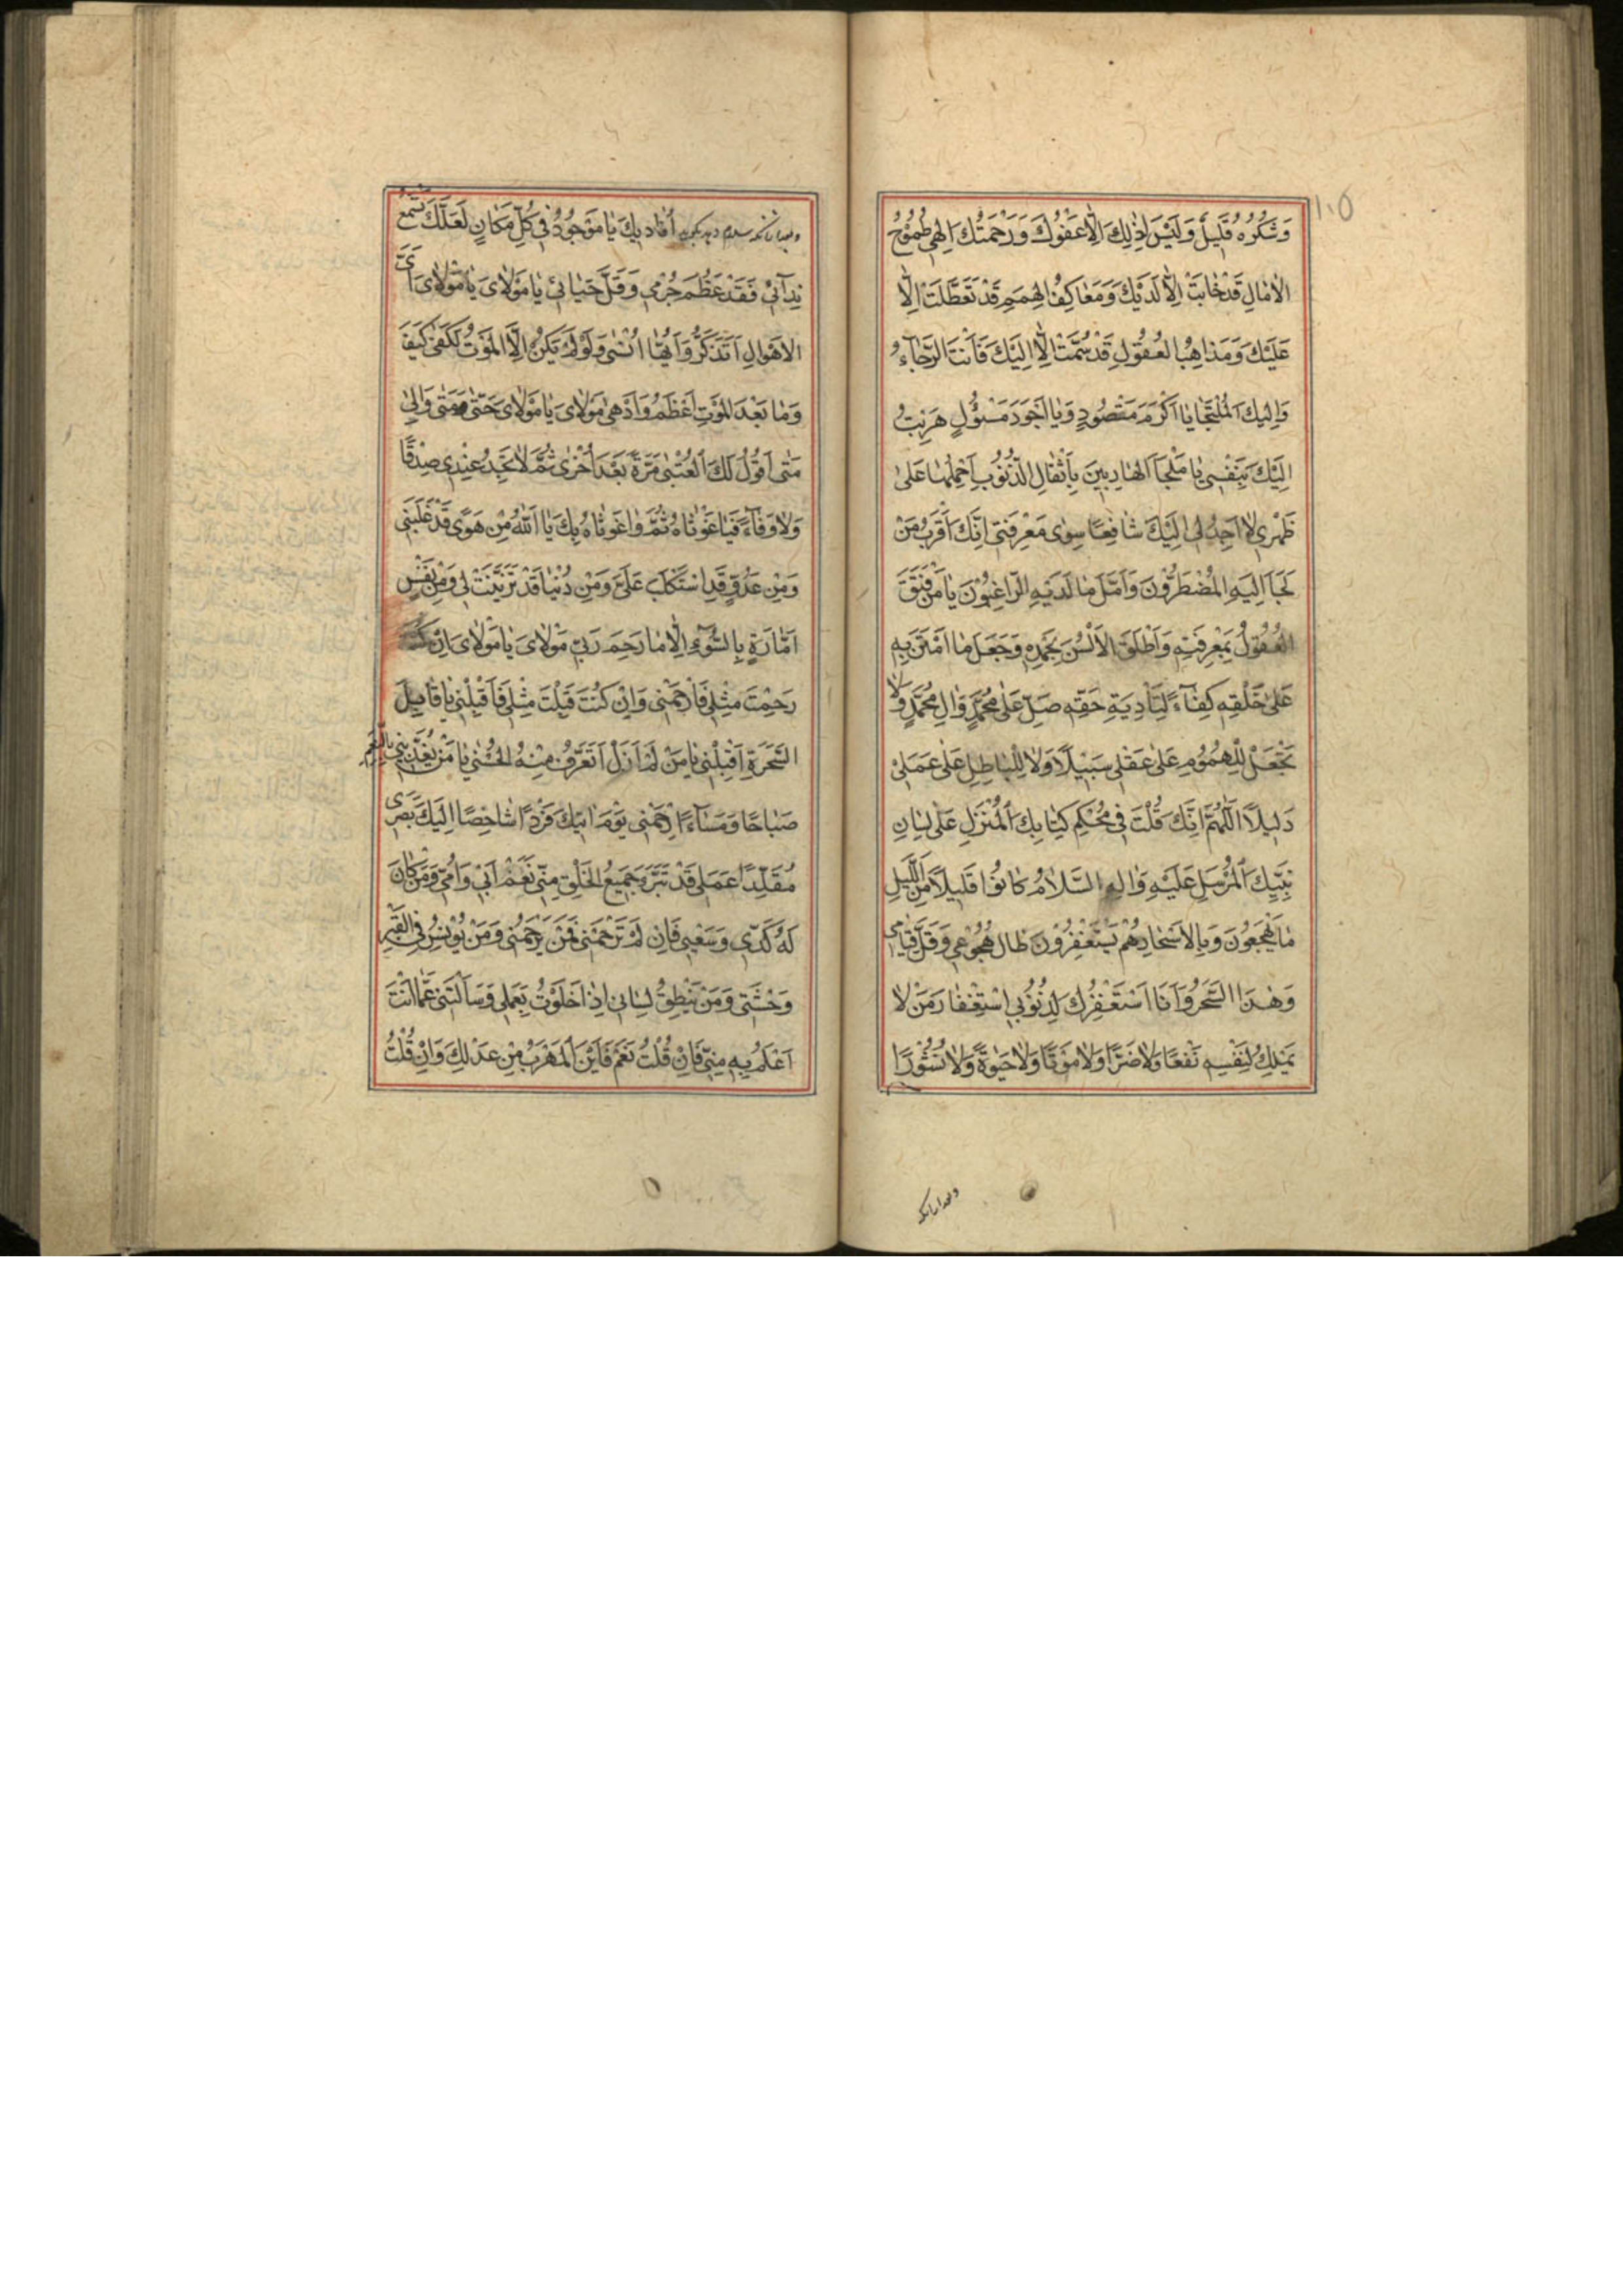 ١٠٥
وَشُكْرُهُ قَلِيلٌ وَلَيْسَ لِذٰلِكَ اِلَّا عَفْوُكَ وَرَحْمَتُكَ اِلٰهِي طُمُوحُ
الْاٰمٰالِ قَدْ خٰابَتْ اِلّٰا لَدَيْكَ وَمَعٰاكِفُ الْهِمَمِ قَدْ تَعَطَّلَتْ اِلّٰا
عَلَيْكَ وَمَذٰاهِبُ الْعُقُولِ قَدْ سُمَّتْ اِلّٰا اِلَيْكَ فَاَنْتَ الرَّجٰاءُ
وَاِلَيْكَ الْمُلْتَجَأُ يٰا اَكْرَمَ مَقْصُودٍ وَيٰا اَجْوَدَ مَسْئُولٍ هَرَبْتُ
اِلَيْكَ بِنَفْسِي يٰا مَلْجَأَ الْهٰارِبِينَ بِاَثْقٰالِ الذُّنُوبِ اَحْمِلُهٰا عَلىٰ
ظَهْرِي لٰا اَجِدُ لِي اِلَيْكَ شٰافِعًا سِوىٰ مَعْرِفَتِي اِنَّكَ اَقْرَبُ مَنْ
لَجَأَ اِلَيْهِ الْمُضْطَرُّونَ وَاَمَّلَ مٰا لَدَيْهِ الرّٰاغِبُونَ يٰا مَنْ فَتَقَ
الْعُقُولَ بِمَعْرِفَتِهِ وَاَطْلَقَ الْاَلْسُنَ بِحَمْدِهِ وَجَعَلَ مَا امْتَنَّ بِهِ
عَلىٰ خَلْقِهِ كِفٰاءً لِتَأْدِيَةِ حَقِّهِ صَلِّ عَلىٰ مُحَمَّدٍ وَاٰلِ مُحَمَّدٍ وَلٰا
تَجْعَلْ لِلْهُمُومِ عَلىٰ عَقْلِي سَبِيلًا وَلٰا لِلْبٰاطِلِ عَلىٰ عَمَلِي
دَلِيلًا اَللّٰهُمَّ اِنَّكَ قُلْتَ فِي مُحْكَمِ كِتٰابِكَ الْمُنْزَلِ عَلىٰ لِسٰانِ
نَبِيِّكَ الْمُرْسَلِ عَلَيْهِ وَاٰلِهِ السَّلٰامُ كٰانُوا قَلِيلًا مِنَ اللَّيْلِ
مٰا يَهْجَعُونَ وَبِالْاَسْحٰارِ هُمْ يَسْتَغْفِرُونَ طٰالَ هُجُوعِي وَقَلَّ قِيٰامِي
وَهٰذَا السَّحَرُ وَاَنَا اَسْتَغْفِرُكَ لِذُنُوبِي اسْتِغْفٰارَ مَنْ لٰا
يَمْلِكُ لِنَفْسِهِ نَفْعًا وَلٰا ضَرًّا وَلٰا مَوْتًا وَلٰا حَيٰوةً وَلٰا نُشُورًا
اُنٰادِيكَ يٰا مَوْجُودُ فِي كُلِّ مَكٰانٍ لَعَلَّكَ تَسْمَعُ
نِدٰائِي فَقَدْ عَظُمَ جُرْمِي وَقَلَّ حَيٰائِي يٰا مَوْلٰايَ يٰا مَوْلٰايَ اَيَّ
الْاَهْوٰالِ اَتَذَكَّرُ وَاَيَّهٰا اَنْسىٰ وَلَوْ لَمْ يَكُنْ اِلَّا الْمَوْتُ لَكَفىٰ كَيْفَ
وَمٰا بَعْدَ الْمَوْتِ اَعْظَمُ وَاَدْهىٰ مَوْلٰايَ يٰا مَوْلٰايَ حَتّىٰ مَتىٰ وَاِلىٰ
مَتىٰ اَقُولُ لَكَ الْعُتْبىٰ مَرَّةً بَعْدَ اُخْرىٰ ثُمَّ لٰا تَجِدُ عِنْدِي صِدْقًا
وَلٰا وَفٰاءً فَيٰا غَوْثٰاهُ ثُمَّ وٰا غَوْثٰاهُ بِكَ يٰا اَللّٰهُ مِنْ هَوًى قَدْ غَلَبَنِي
وَمِنْ عَدُوٍّ قَدِ اسْتَكْلَبَ عَلَيَّ وَمِنْ دُنْيٰا قَدْ تَزَيَّنَتْ لِي وَمِنْ نَفْسٍ
اَمّٰارَةٍ بِالسُّوءِ اِلّٰا مٰا رَحِمَ رَبِّي مَوْلٰايَ يٰا مَوْلٰايَ اِنْ كُنْتَ
رَحِمْتَ مِثْلِي فَارْحَمْنِي وَاِنْ كُنْتَ قَبِلْتَ مِثْلِي فَاَقْبِلْنِي يٰا قٰابِلَ
السَّحَرَةِ اَقْبِلْنِي يٰا مَنْ لَمْ اَزَلْ اَتَعَرَّفُ مِنْهُ الْحُسْنىٰ يٰا مَنْ يُغَذِّينِي بِالنِّعَمِ
صَبٰاحًا وَمَسٰاءً اِرْحَمْنِي يَوْمَ اٰتِيكَ فَرْدًا شٰاخِصًا اِلَيْكَ بَصَرِي
مُقَلَّدًا عَمَلِي قَدْ تَبَرَّءَ جَمِيعُ الْخَلْقِ مِنِّي نَعَمْ اَبِي وَاُمِّي وَمَنْ كٰانَ
لَهُ كَدِّي وَسَعْيِي فَاِنْ لَمْ تَرْحَمْنِي فَمَنْ يَرْحَمُنِي وَمَنْ يُونِسُ فِي الْقَبْرِ
وَحْشَتِي وَمَنْ يُنْطِقُ لِسٰانِي اِذٰا خَلَوْتُ بِعَمَلِي وَسَأَلْتَنِي عَمّٰا اَنْتَ
اَعْلَمُ بِهِ مِنِّي فَاِنْ قُلْتُ نَعَمْ فَاَيْنَ الْمَهْرَبُ مِنْ عَدْلِكَ وَاِنْ قُلْتُ